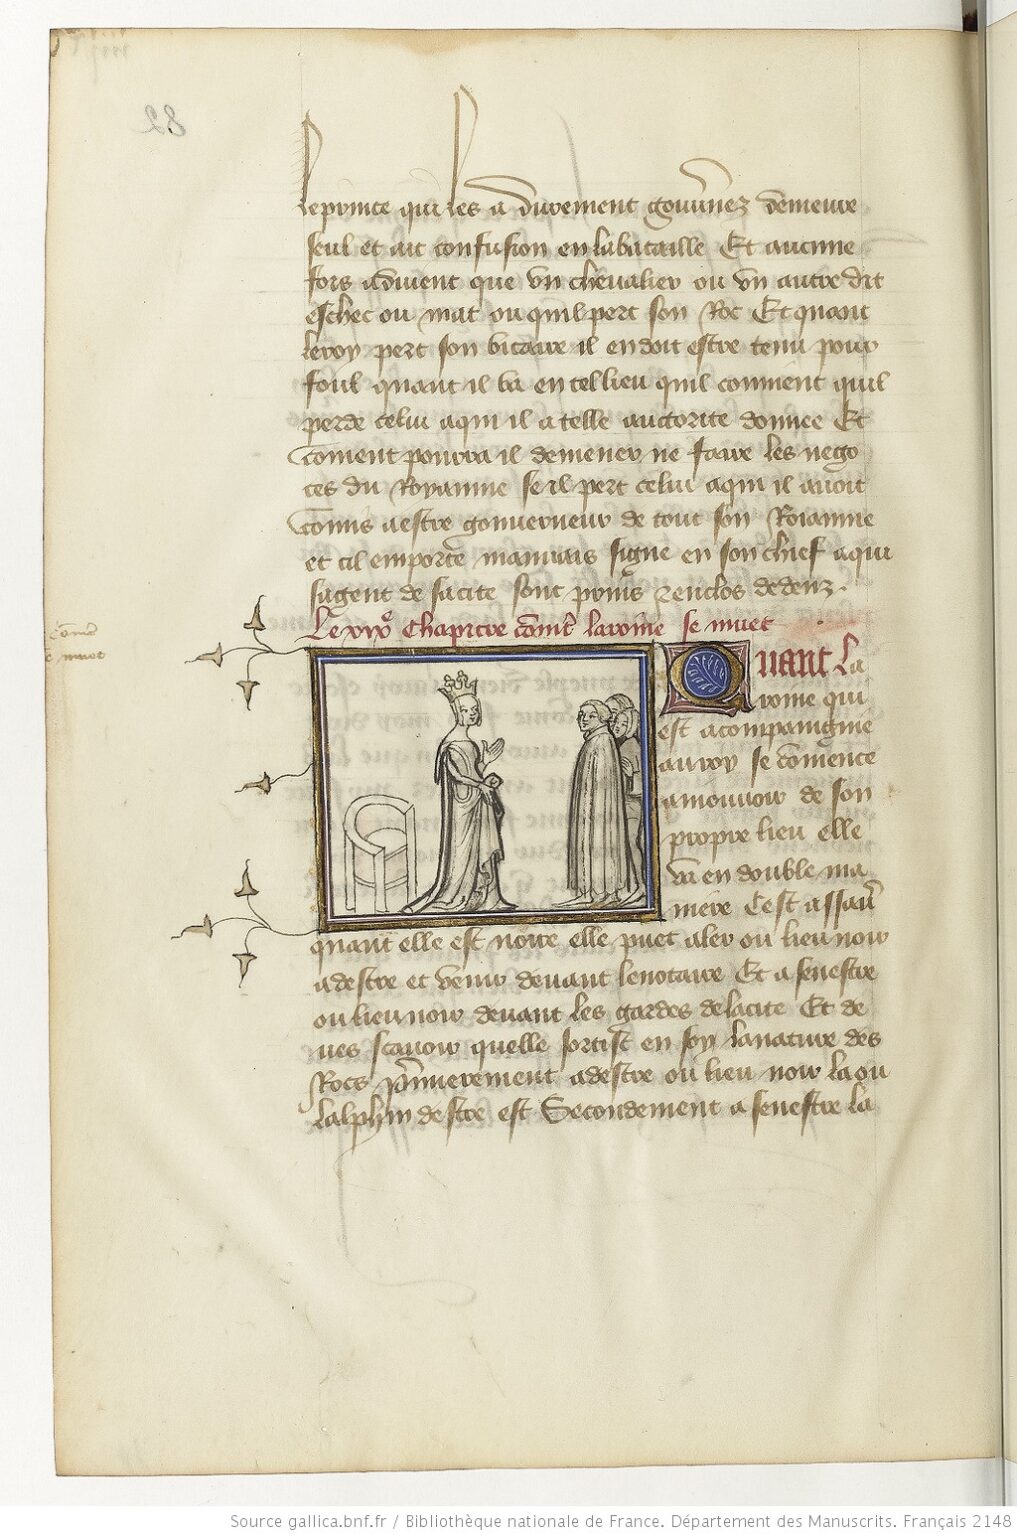 le prince qui les a durement gouv̄nez demeure
seul et ait confusion en la bataille Et aucune
fois aduient que vn cheualier ou vn autre dit
eschec ou mat ou quil pert son Roc Et quant
le roy pert son vicaire il en doit estre tenu pour
foul quant il va en tel lieu quil conuient quil
perde celui a qui il a telle auctorite donnee Et
coment pourra il demener ne faire les nego
ces du Royaume se il pert celui a qui il auoit
conmis a estre gouuerneur de tout son Roiaume
et cil emporte mauuais signe en son chief a qui
sagent de sa cite sont prins renclos dedenz.
Le xixe chapitre cōmt̄ la roine se muet
Quant La
roine qui
est acompaingnie
au roy se cōmence
a mouuoir de son
propre lieu elle
va en double ma
niere Cest assau̅
quant elle est noire elle puet aler ou lieu noir
a destre et venir deuant le notaire Et a senestre
ou lieu noir deuant les gardes de la cite Et de
ues scauoir quelle sortist en soy la nature des
Rocs p̄mierement a destre ou lieu noir la ou
lalphin destre est Secondement a senestre la
82
Source gallica.bnf.fr / Bibliothèque nationale de France. Département des Manuscrits. Français 2148